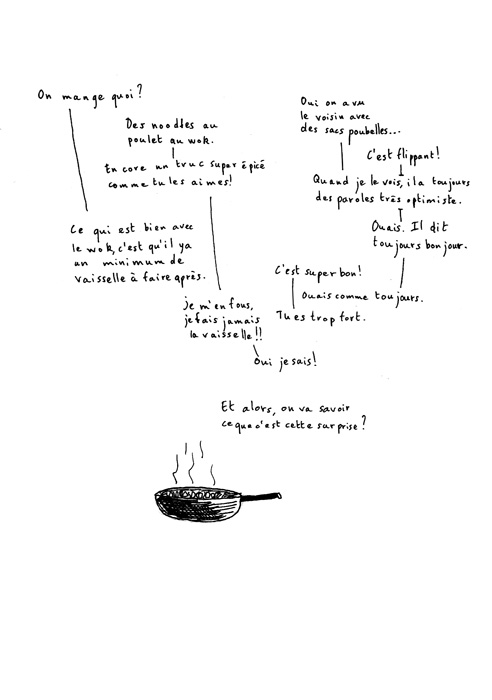 On mange quoi?
Des noodles au
poulet au wok.
Encore un truc super épicé
comme tu les aimes!
Ce qui est bien avec
le wok, c'est qu'il y a
un minimum de
vaisselle à faire après.
je m'en fous,
je fais jamais
la vaisselle!!
Oui je sais!
Oui on a vu
le voisin avec
des sacs poubelles...
C'est flippant!
Quand je le vois, il a toujours
des paroles très optimiste.
Ouais. Il dit
toujours bonjour.
C'est super bon!
Ouais comme toujours.
Tu es trop fort.
Et alors, on va savoir
ce que c'est cette surprise?